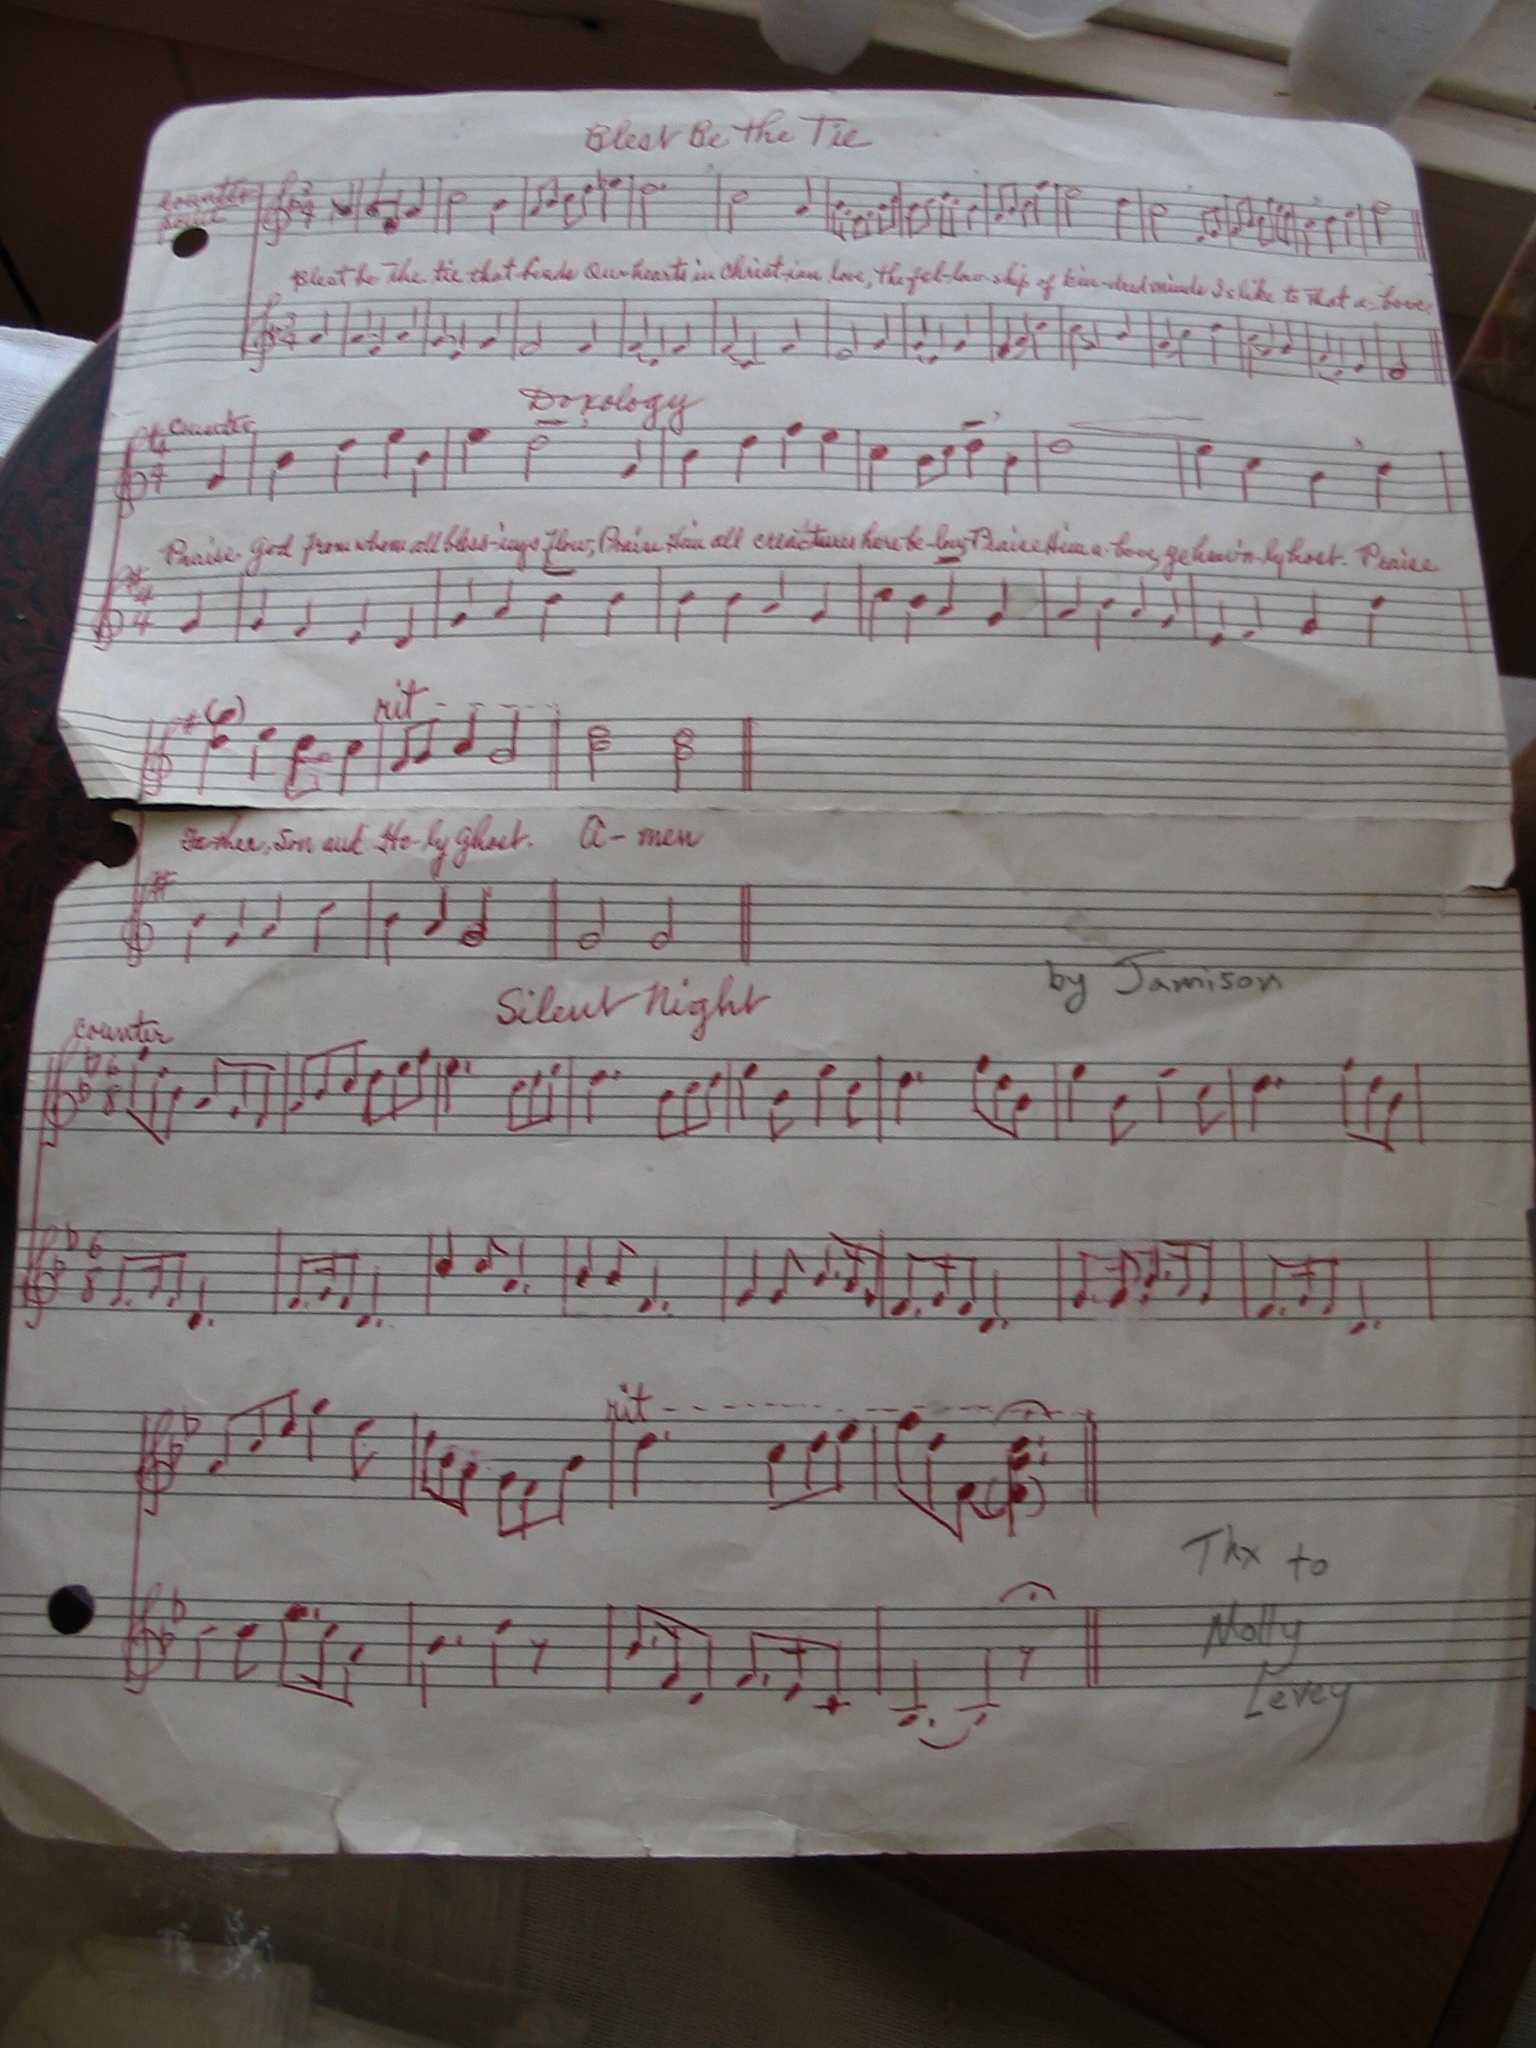 Blest Be the Tie
counter point
Blest be the tie that binds Our hearts in Christ-ian love, the fel-low-ship of kin-dred minds Is like to that a-bove,
Doxology
counter
4
4
Praise God from whom all bless-ings flow, Praise Him all creatures here be-low, Praise Him a-bove, ye heav'n-ly host. Praise
4
4
rit
Father, Son and Ho-ly Ghost. A-men
by Jamison
Silent Night
counter
6
8
6
8
rit
Thx to
Molly
Levey